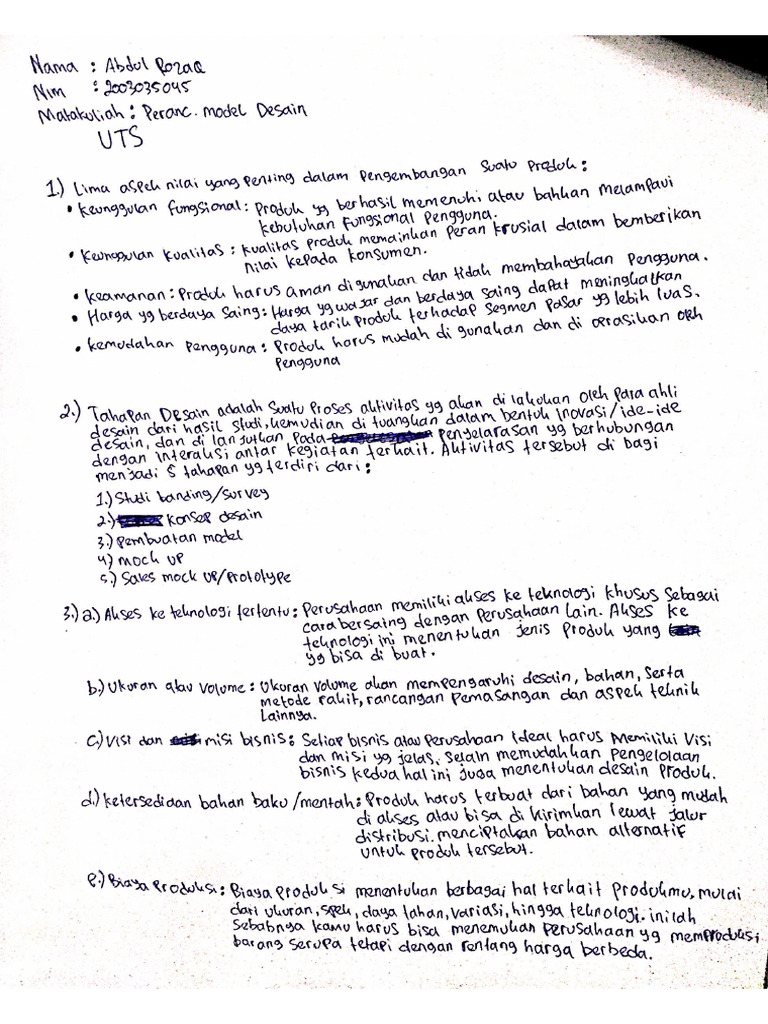 Nama : Abdul Rozaq
Nim : 2003035045
Matakuliah : Peranc. model Desain
UTS
1.) Lima aspek nilai yang penting dalam pengembangan suatu produk :
• Keunggulan fungsional : Produk yg berhasil memenuhi atau bahkan melampaui
kebutuhan fungsional pengguna.
• Keunggulan kualitas : kualitas produk memainkan peran krusial dalam bemberikan
nilai kepada konsumen.
• Keamanan : Produk harus aman di gunakan dan tidak membahayakan pengguna.
• Harga yg berdaya saing : Harga yg wajar dan berdaya saing dapat meningkatkan
daya tarik produk terhadap segmen pasar yg lebih luas.
• kemudahan pengguna : Produk harus mudah di gunakan dan di oprasikan oleh
pengguna
2.) Tahapan Desain adalah suatu proses aktivitas yg akan di lakukan oleh para ahli
desain dari hasil studi, kemudian di tuangkan dalam bentuk inovasi/ide-ide
desain, dan di lanjutkan pada penyelarasan yg berhubungan
dengan interaksi antar kegiatan terkait. Aktivitas tersebut di bagi
menjadi 5 tahapan yg terdiri dari :
1.) Studi banding/survey
2.) konsep desain
3.) pembuatan model
4.) mock up
5.) Sales mock up/prototype
3.) a.) Akses ke teknologi tertentu : Perusahaan memiliki akses ke teknologi khusus sebagai
cara bersaing dengan perusahaan lain. Akses ke
teknologi ini menentukan jenis produk yang
yg bisa di buat.
b.) Ukuran atau volume : Ukuran volume akan mempengaruhi desain, bahan, serta
metode rakit, rancangan pemasangan dan aspek teknik
lainnya.
c.) Visi dan misi bisnis : Setiap bisnis atau perusahaan ideal harus memiliki visi
dan misi yg jelas, selain memudahkan pengelolaan
bisnis kedua hal ini juga menentukan desain produk.
d.) ketersediaan bahan baku/mentah : Produk harus terbuat dari bahan yang mudah
di akses atau bisa di kirimkan lewat jalur
distribusi. menciptakan bahan alternatif
untuk produk tersebut.
e.) Biaya produksi : Biaya produksi menentukan berbagai hal terkait produkmu, mulai
dari ukuran, spek, daya tahan, variasi, hingga teknologi. inilah
sebabnya kamu harus bisa menemukan perusahaan yg memproduksi
barang serupa tetapi dengan rentang harga berbeda.